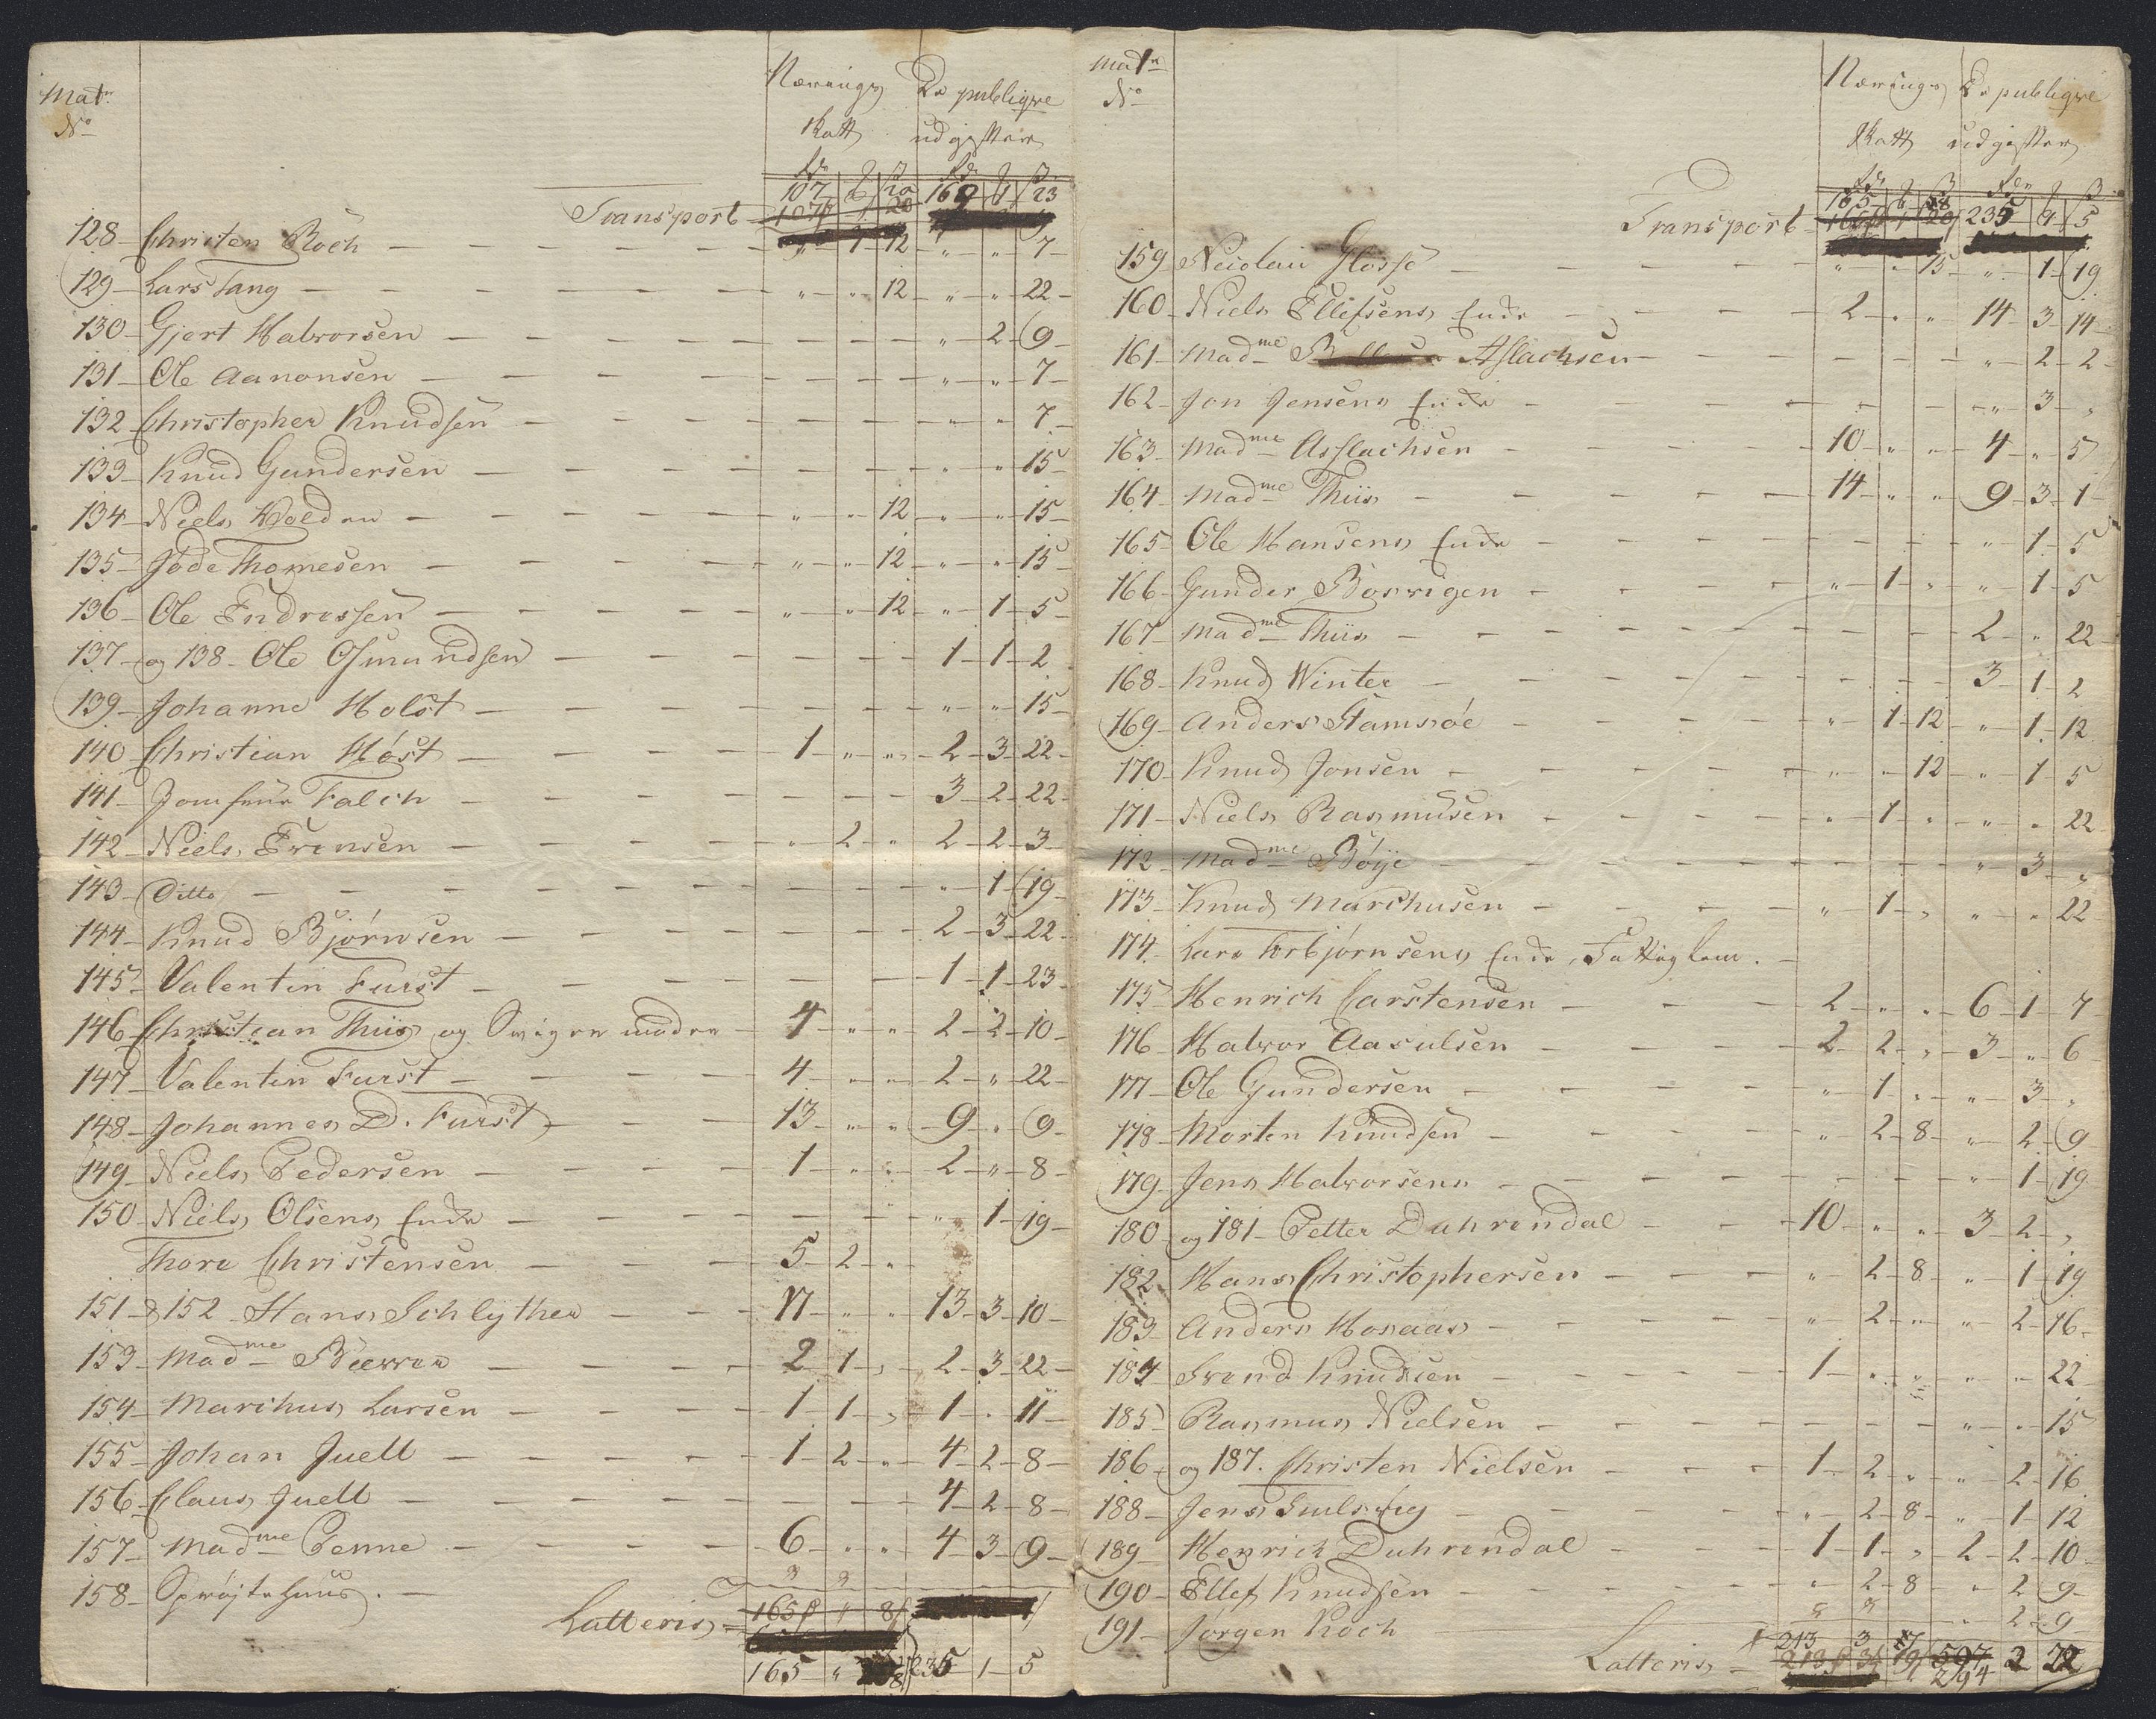 Mat:
No
Nærings De publiqve
Skatt udgifter
Transport 107 20 169 1 23
128 Christen Roch 1 12 " " 7
129 Lars Tang " " 12 " " 22
130 Gjert Halvorsen " 2 9
131 Ole Aanonsen " " 7
132 Christopher Knudsen " " 7
133 Knud Gundersen " " 15
134 Niels Holden " " 12 " " 15
135 Jöde Thomesen " " 12 " " 15
136 Ole Endresen " " 12 " 1 5
137 og 138 Ole Osmundsen 1 1 2
139 Johanne Holst " " 15
140 Christian Høst 1 " " 2 3 22
141 Jomfrue Falch 3 2 22
142 Niels Evensen " 2 " 2 2 3
143 Ditto " 1 19
144 Knud Bjørnsen 2 3 22
145 Valentin Furst 1 1 23
146 Christian Thiis og Svigermoder 4 " " 2 2 10
147 Valentin Furst 4 " " 2 " 22
148 Johannes D. Furst 13 " " 9 " 9
149 Niels Pedersen 1 " " 2 " 8
150 Niels Olsens Enke " 1 19
Thore Christensen 5 2 "
151 & 152 Hans Schlÿther 17 " " 13 3 10
153 Madme 2 1 " 2 3 22
154 Marchus Larsen 1 1 " 1 " 11
155 Johan Juell 1 2 " 4 2 8
156 Claus Juell 4 2 8
157 Madme Penne 6 " " 4 3 9
158 Sprøjtehuus.
Latteris 165 8
165 " 8 235 1 5
Matr
No
Nærings De publiqve
Skatt udgifter
Transport 165 " 8 235 1 5
159 Nicolai Glosse " " 15 " 1 19
160 Niels Ellefsens Enke 2 " " 14 3 14
161 Madme Aslachsen " 2 2
162 Jon Jensens Enke " 3 "
163 Madme Asslachsen 10 " " 4 " 5
164 Madme Thiis 14 " " 9 3 1
165 Ole Hansens Enke " 1 5
166 Gunder Bosvigen " 1 " " 1 5
167 Madme Thiis 2 " 22
168 Knud Winter 3 1 2
169 Anders Stamsöe " 1 12 " 1 12
170 Knud Jonsen " " 12 " 1 5
171 Niels Rasmusen " 1 " " " 22
172 Madme Bøije " 3 "
173 Knud Marchusen " 1 " " " 22
174 Lars Torbjørnsens Enke, Fattiglem.
175 Henrich Carstensen 2 " " 6 1 7
176 Halvor Aasulsen 2 2 " 3 " 6
177 Ole Gundersen " 1 " " 3 "
178 Morten Knudsen " 2 8 " 2 9
179 Jens Halvorsens " 1 19
180 og 181 Petter Duhrendal 10 " " 3 2 "
182 Hans Christophersen " 2 8 " 1 19
183 Anders Honaas " 2 " " 2 16
184 Svend Knudsen 1 " " " " 22
185 Rasmus Nielsen " " 15
186 og 187. Christen Nielsen 1 2 " " 2 16
188 Jens " 2 8 " 1 12
189 Henrich Duhrendal 1 1 " 2 2 10
190 Ellef Knudsen " 2 8 " 2 9
191 Jørgen Koch " 2 9
Latteris 213 3 17 294 2 22